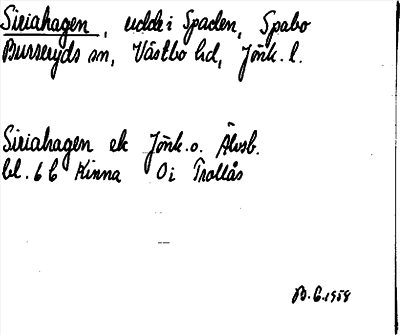 Siriahagen, udde i Spaden, Spabo
Burseryds sn, Västbo hd, Jönk. l.
Siriahagen ek Jönk. o. Älvsb.
bl. 6 b Kinna Oi Trollås
B. G. 1958